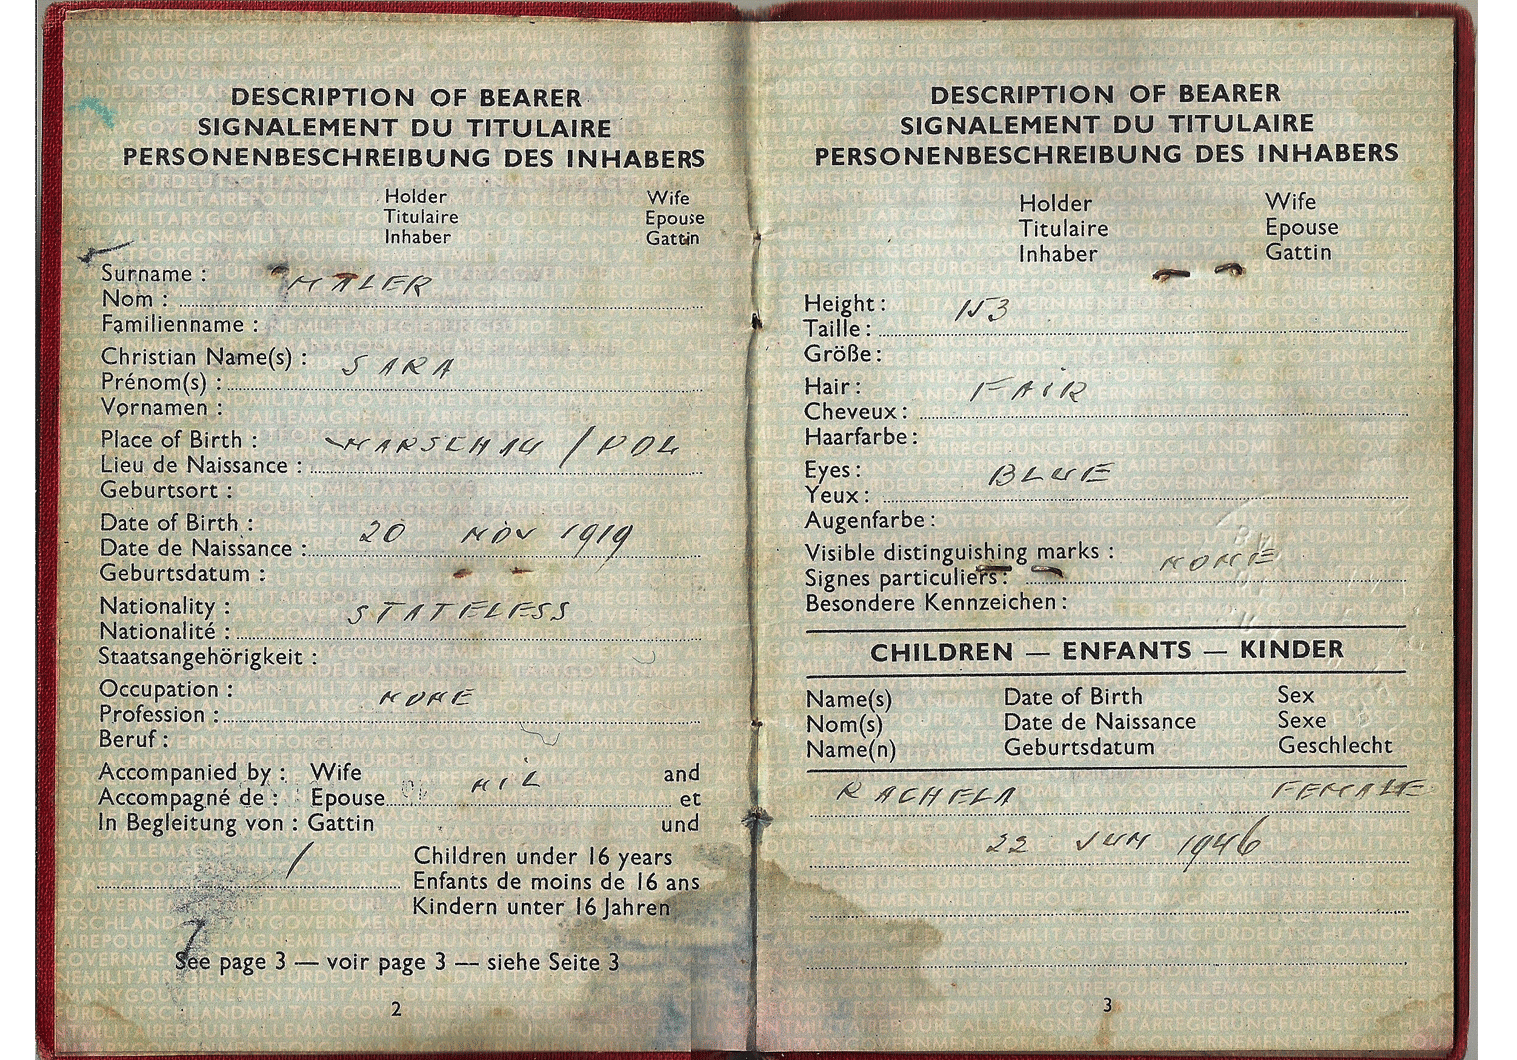 DESCRIPTION OF BEARER
SIGNALEMENT DU TITULAIRE
PERSONENBESCHREIBUNG DES INHABERS
Holder Wife
Titulaire Epouse
Inhaber Gattin
Surname : MALER
Nom :
Familienname :
Christian Name(s) : SARA
Prénom(s) :
Vornamen :
Place of Birth : WARSCHAU / POL
Lieu de Naissance :
Geburtsort :
Date of Birth : 20 NOV 1919
Date de Naissance :
Geburtsdatum :
Nationality : STATELESS
Nationalité :
Staatsangehörigkeit :
Occupation : NONE
Profession :
Beruf :
Accompanied by : Wife NIL and
Accompagné de : Epouse et
In Begleitung von : Gattin und
1 Children under 16 years
Enfants de moins de 16 ans
Kindern unter 16 Jahren
See page 3 — voir page 3 — siehe Seite 3
2
DESCRIPTION OF BEARER
SIGNALEMENT DU TITULAIRE
PERSONENBESCHREIBUNG DES INHABERS
Holder Wife
Titulaire Epouse
Inhaber Gattin
Height : 153
Taille :
Größe :
Hair : FAIR
Cheveux :
Haarfarbe :
Eyes : BLUE
Yeux :
Augenfarbe :
Visible distinguishing marks : NONE
Signes particuliers :
Besondere Kennzeichen :
CHILDREN — ENFANTS — KINDER
Name(s) Date of Birth Sex
Nom(s) Date de Naissance Sexe
Name(n) Geburtsdatum Geschlecht
RACHELA FEMALE
22 JUN 1946
3